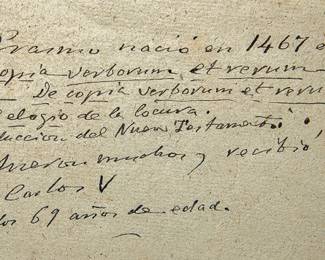 Erasmo nació en 1467
copia verborum et rerum
De copia verborum et reru
elogio de la locura.
duccion del Nuevo Testamento
muchos y recibió
Carlos V
los 69 años de edad.